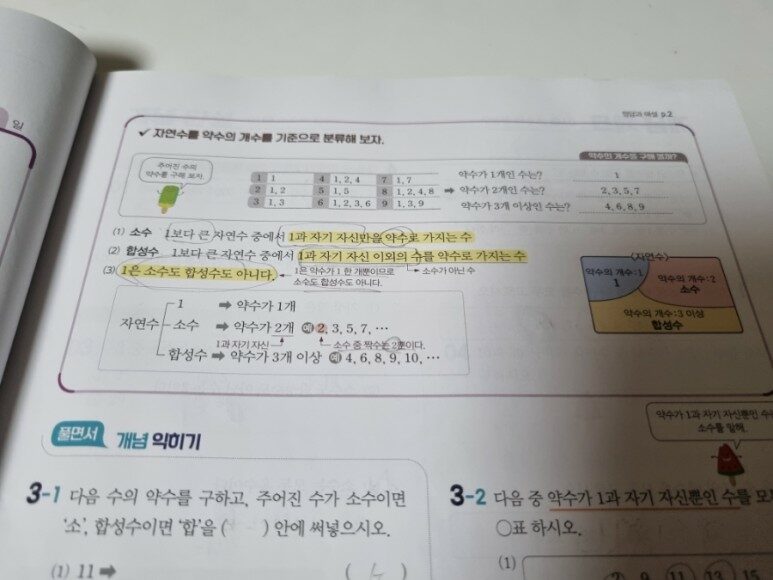 일
정답과 해설 p.2
✓ 자연수를 약수의 개수를 기준으로 분류해 보자.
주어진 수의
약수를 구해 보자.
약수의 개수를 구해 볼까?
1 1 4 1, 2, 4 7 1, 7 약수가 1개인 수는? 1
2 1, 2 5 1, 5 8 1, 2, 4, 8 ➡ 약수가 2개인 수는? 2, 3, 5, 7
3 1, 3 6 1, 2, 3, 6 9 1, 3, 9 약수가 3개 이상인 수는? 4, 6, 8, 9
(1) 소수 1보다 큰 자연수 중에서 1과 자기 자신만을 약수로 가지는 수
(2) 합성수 1보다 큰 자연수 중에서 1과 자기 자신 이외의 수를 약수로 가지는 수
(3) 1은 소수도 합성수도 아니다. 1은 약수가 1 한 개뿐이므로 소수가 아닌 수
소수도 합성수도 아니다.
〈자연수〉
약수의 개수: 1
1
약수의 개수: 2
소수
약수의 개수: 3 이상
합성수
1 ➡ 약수가 1개
자연수 소수 ➡ 약수가 2개 예 2, 3, 5, 7, …
1과 자기 자신 소수 중 짝수는 2뿐이다.
합성수 ➡ 약수가 3개 이상 예 4, 6, 8, 9, 10, …
풀면서 개념 익히기
약수가 1과 자기 자신뿐인
소수를 말해.
3-1 다음 수의 약수를 구하고, 주어진 수가 소수이면
'소', 합성수이면 '합'을 ( ) 안에 써넣으시오.
(1) 11 ➡ ( )
3-2 다음 중 약수가 1과 자기 자신뿐인 수를
○표 하시오.
(1)
9 11 13 15